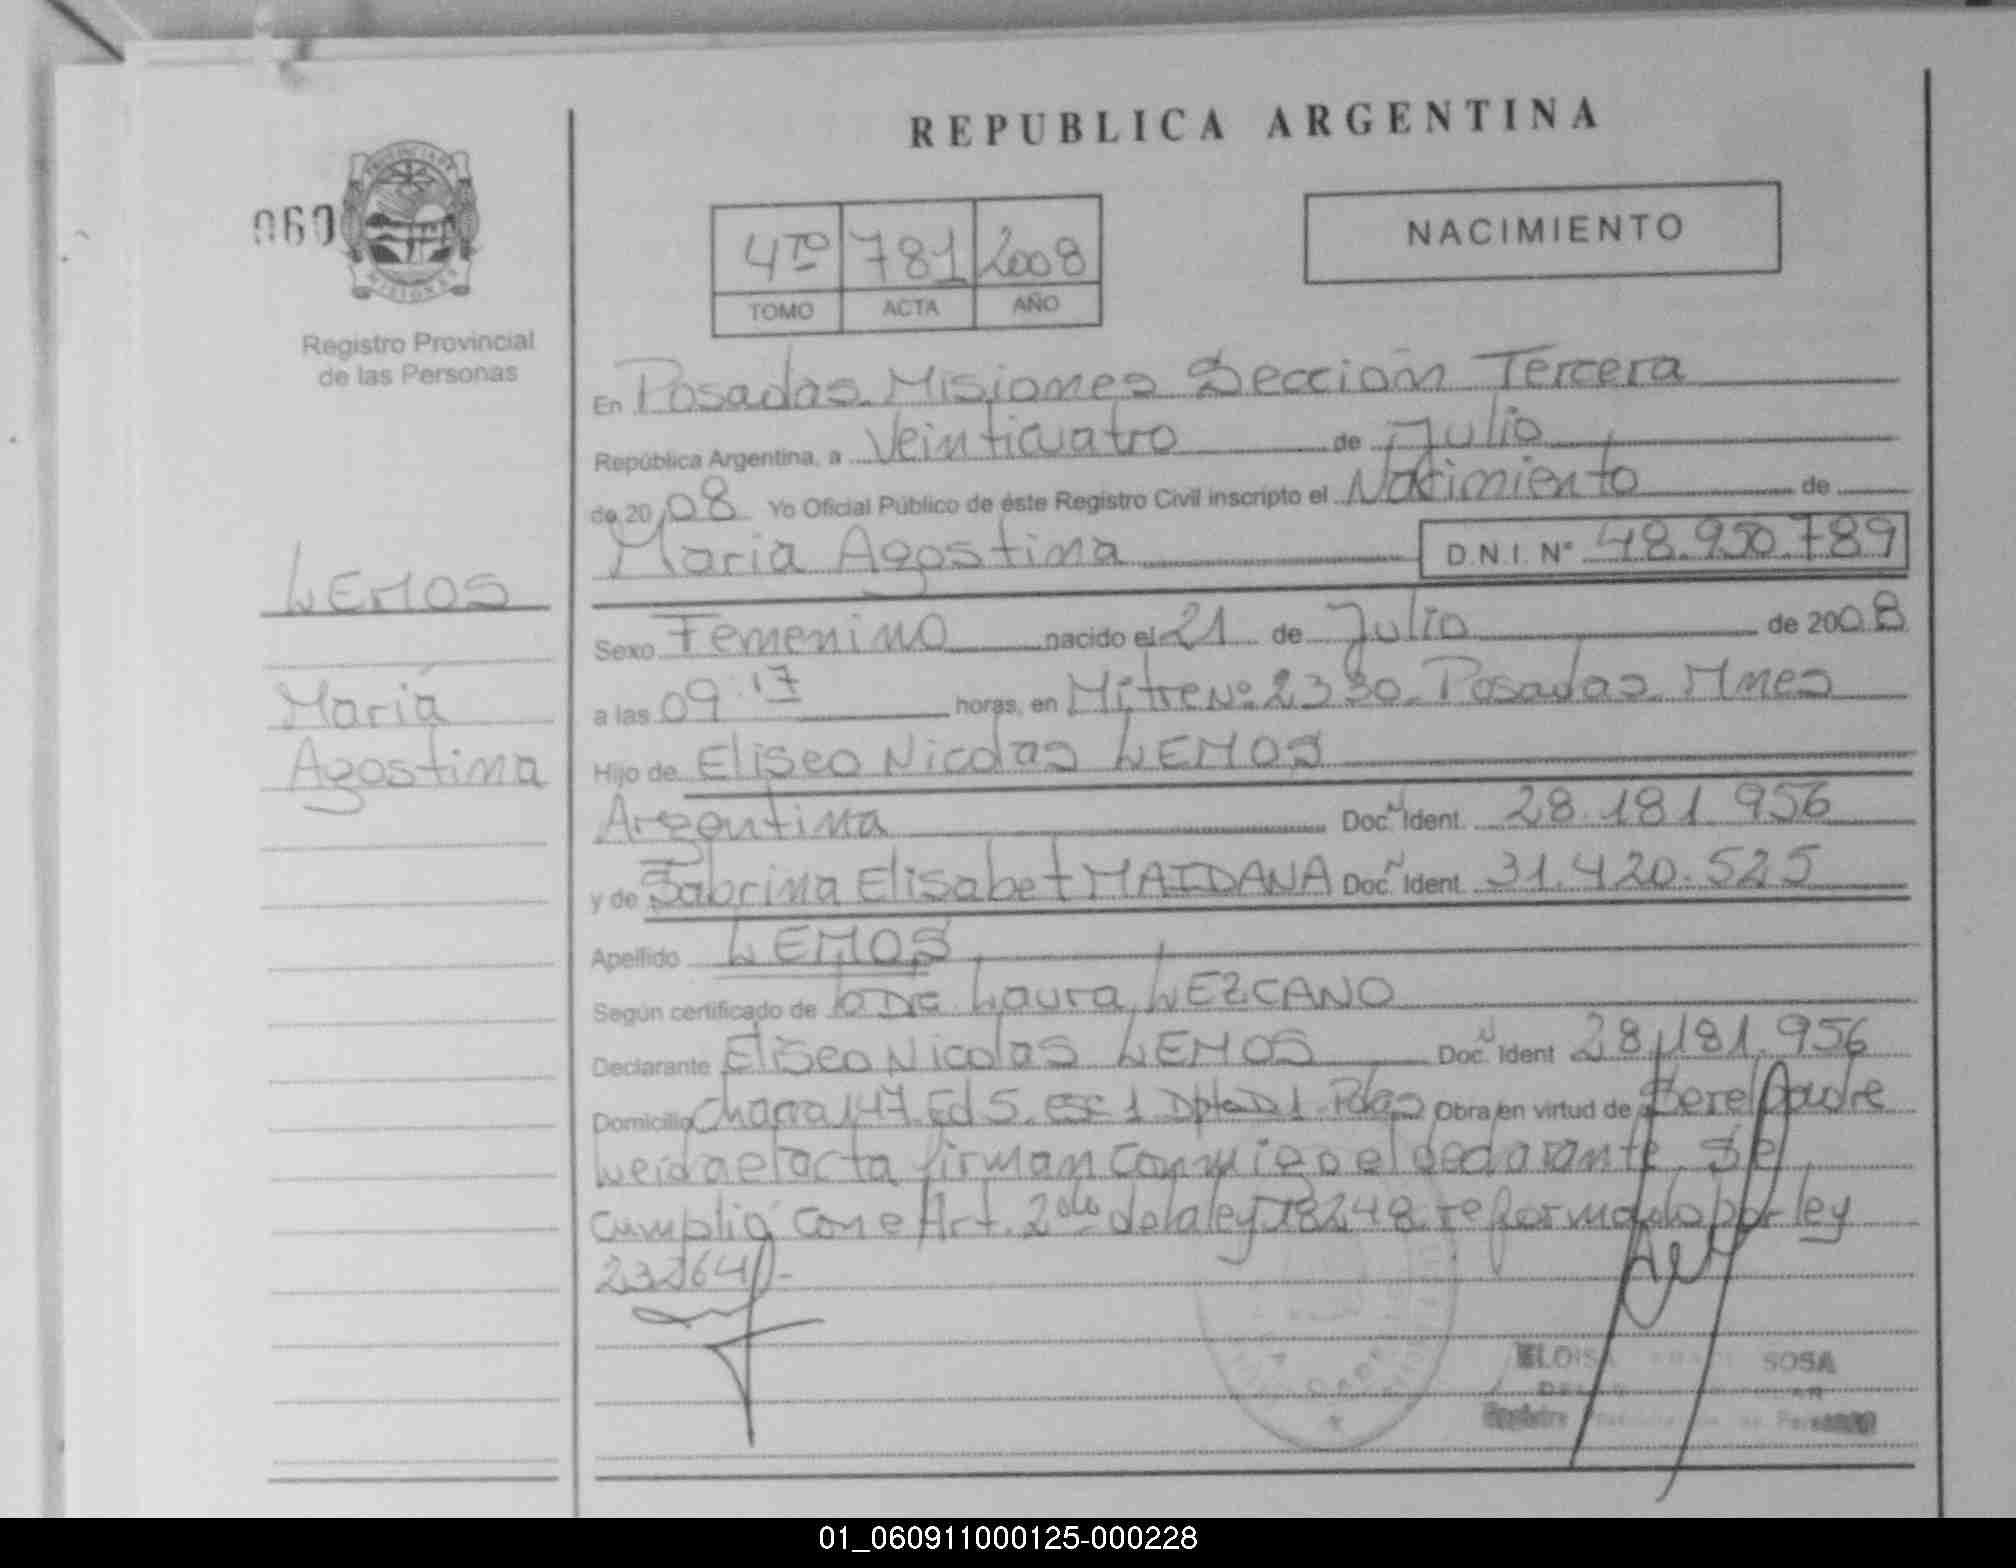 REPUBLICA ARGENTINA
060
NACIMIENTO
4TO 781 2008
TOMO ACTA AÑO
Registro Provincial
de las Personas
En Posadas Misiones Sección Tercera
República Argentina, a Veinticuatro de Julio
de 2008 Yo Oficial Público de éste Registro Civil inscripto el Nacimiento de
Maria Agostina D.N.I. Nº 48.950.789
LEMOS
Sexo Femenino nacido el 21 de Julio de 2008
María
a las 09:17 horas, en Mitre Nº 2330 Posadas Mnes
Agostina
Hijo de Eliseo Nicolas LEMOS
Argentina Doc. Ident. 28.181.956
y de Sabrina Elisabet MAIDANA Doc. Ident. 31.420.525
Apellido LEMOS
Según certificado de Laura LEZCANO
Declarante Eliseo Nicolas LEMOS Doc. Ident 28.181.956
Domicilio Chacra 147 Ed 5 esc 1 Dpto D1 Pdas Obra en virtud de Ser el Padre
Leida el acta firman conmigo el declarante. Se
cumplió con el Art. 2do de la ley 18248 reformado por ley
23264.-
ELOISA SOSA
01_060911000125-000228